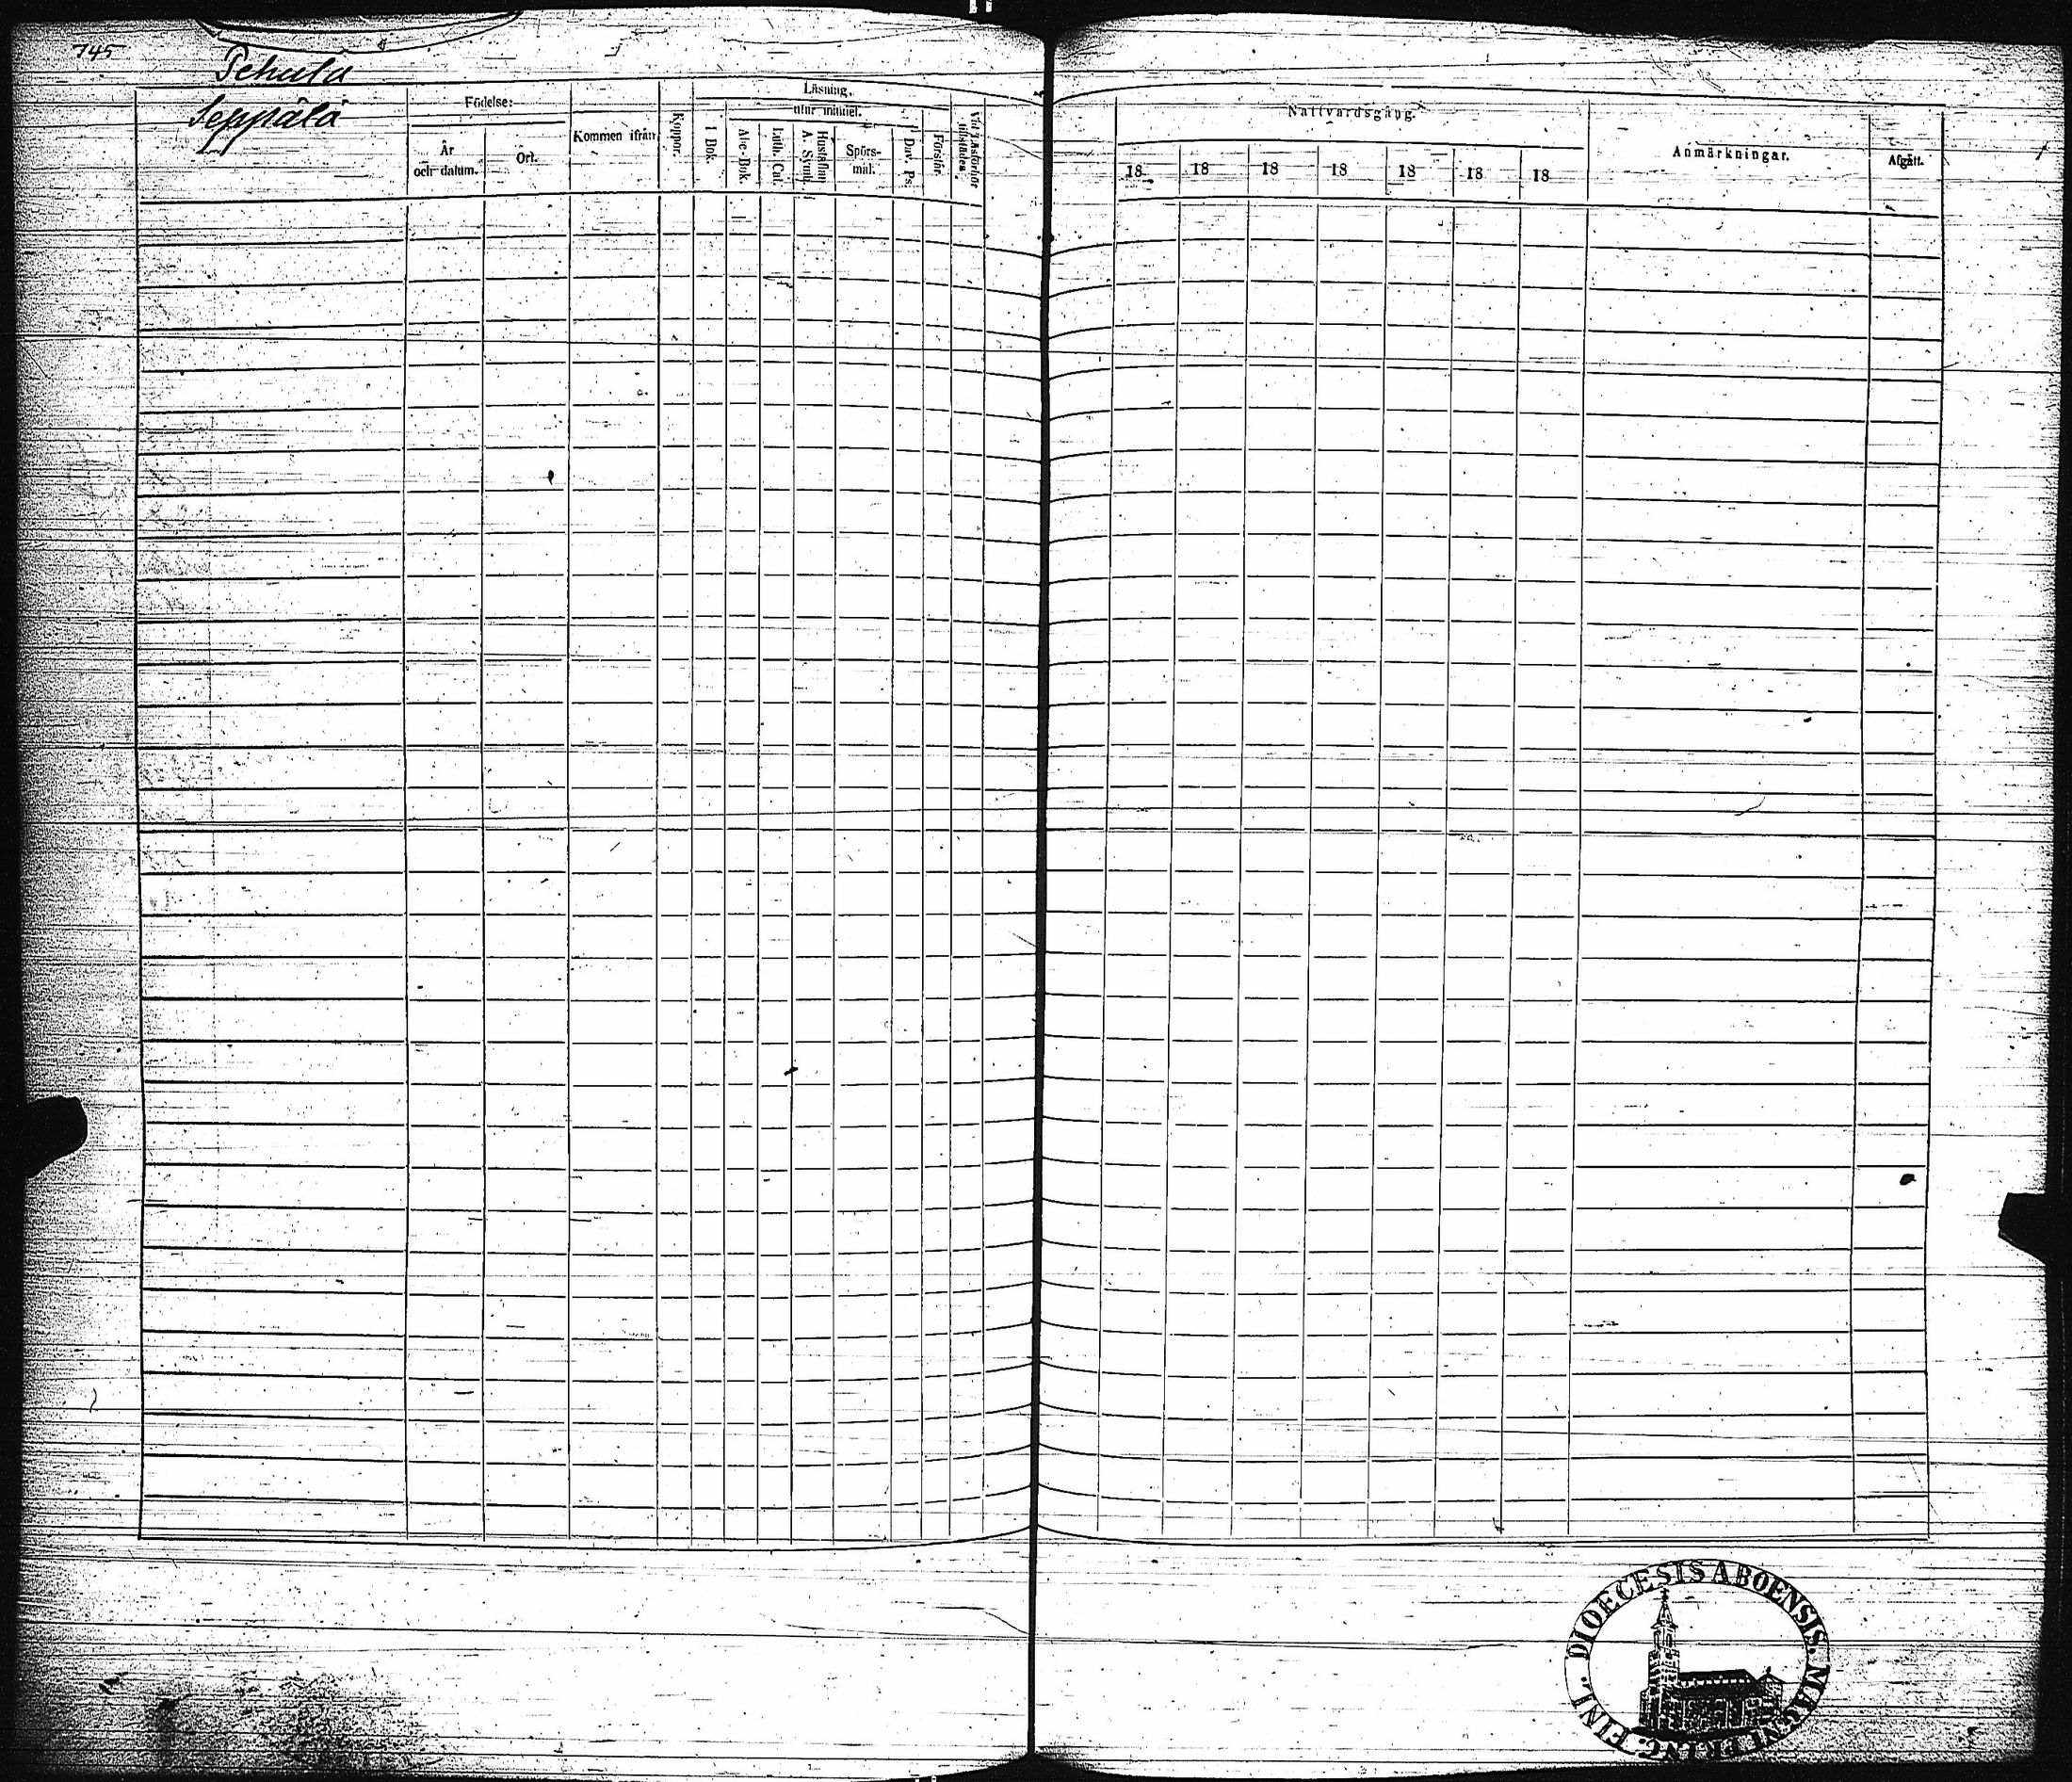 745
Pehula
Seppälä
Födelse:
År
och datum.
Ort.
Kommen ifrån
Koppor.
Läsning,
utur minnet.
I Bok.
Abc-Bok.
Luth. Cat.
Hustaflan
A. Symb.
Spörs-
mål.
Dav. Ps.
Förstår.
Vid Läsförhör
tillstädes.
Nattvardsgång.
18 18 18 18 18 18 18
Anmärkningar.
Afgått.
DIOECESIS ABOENSIS. MAGNI PRINC. FINL.